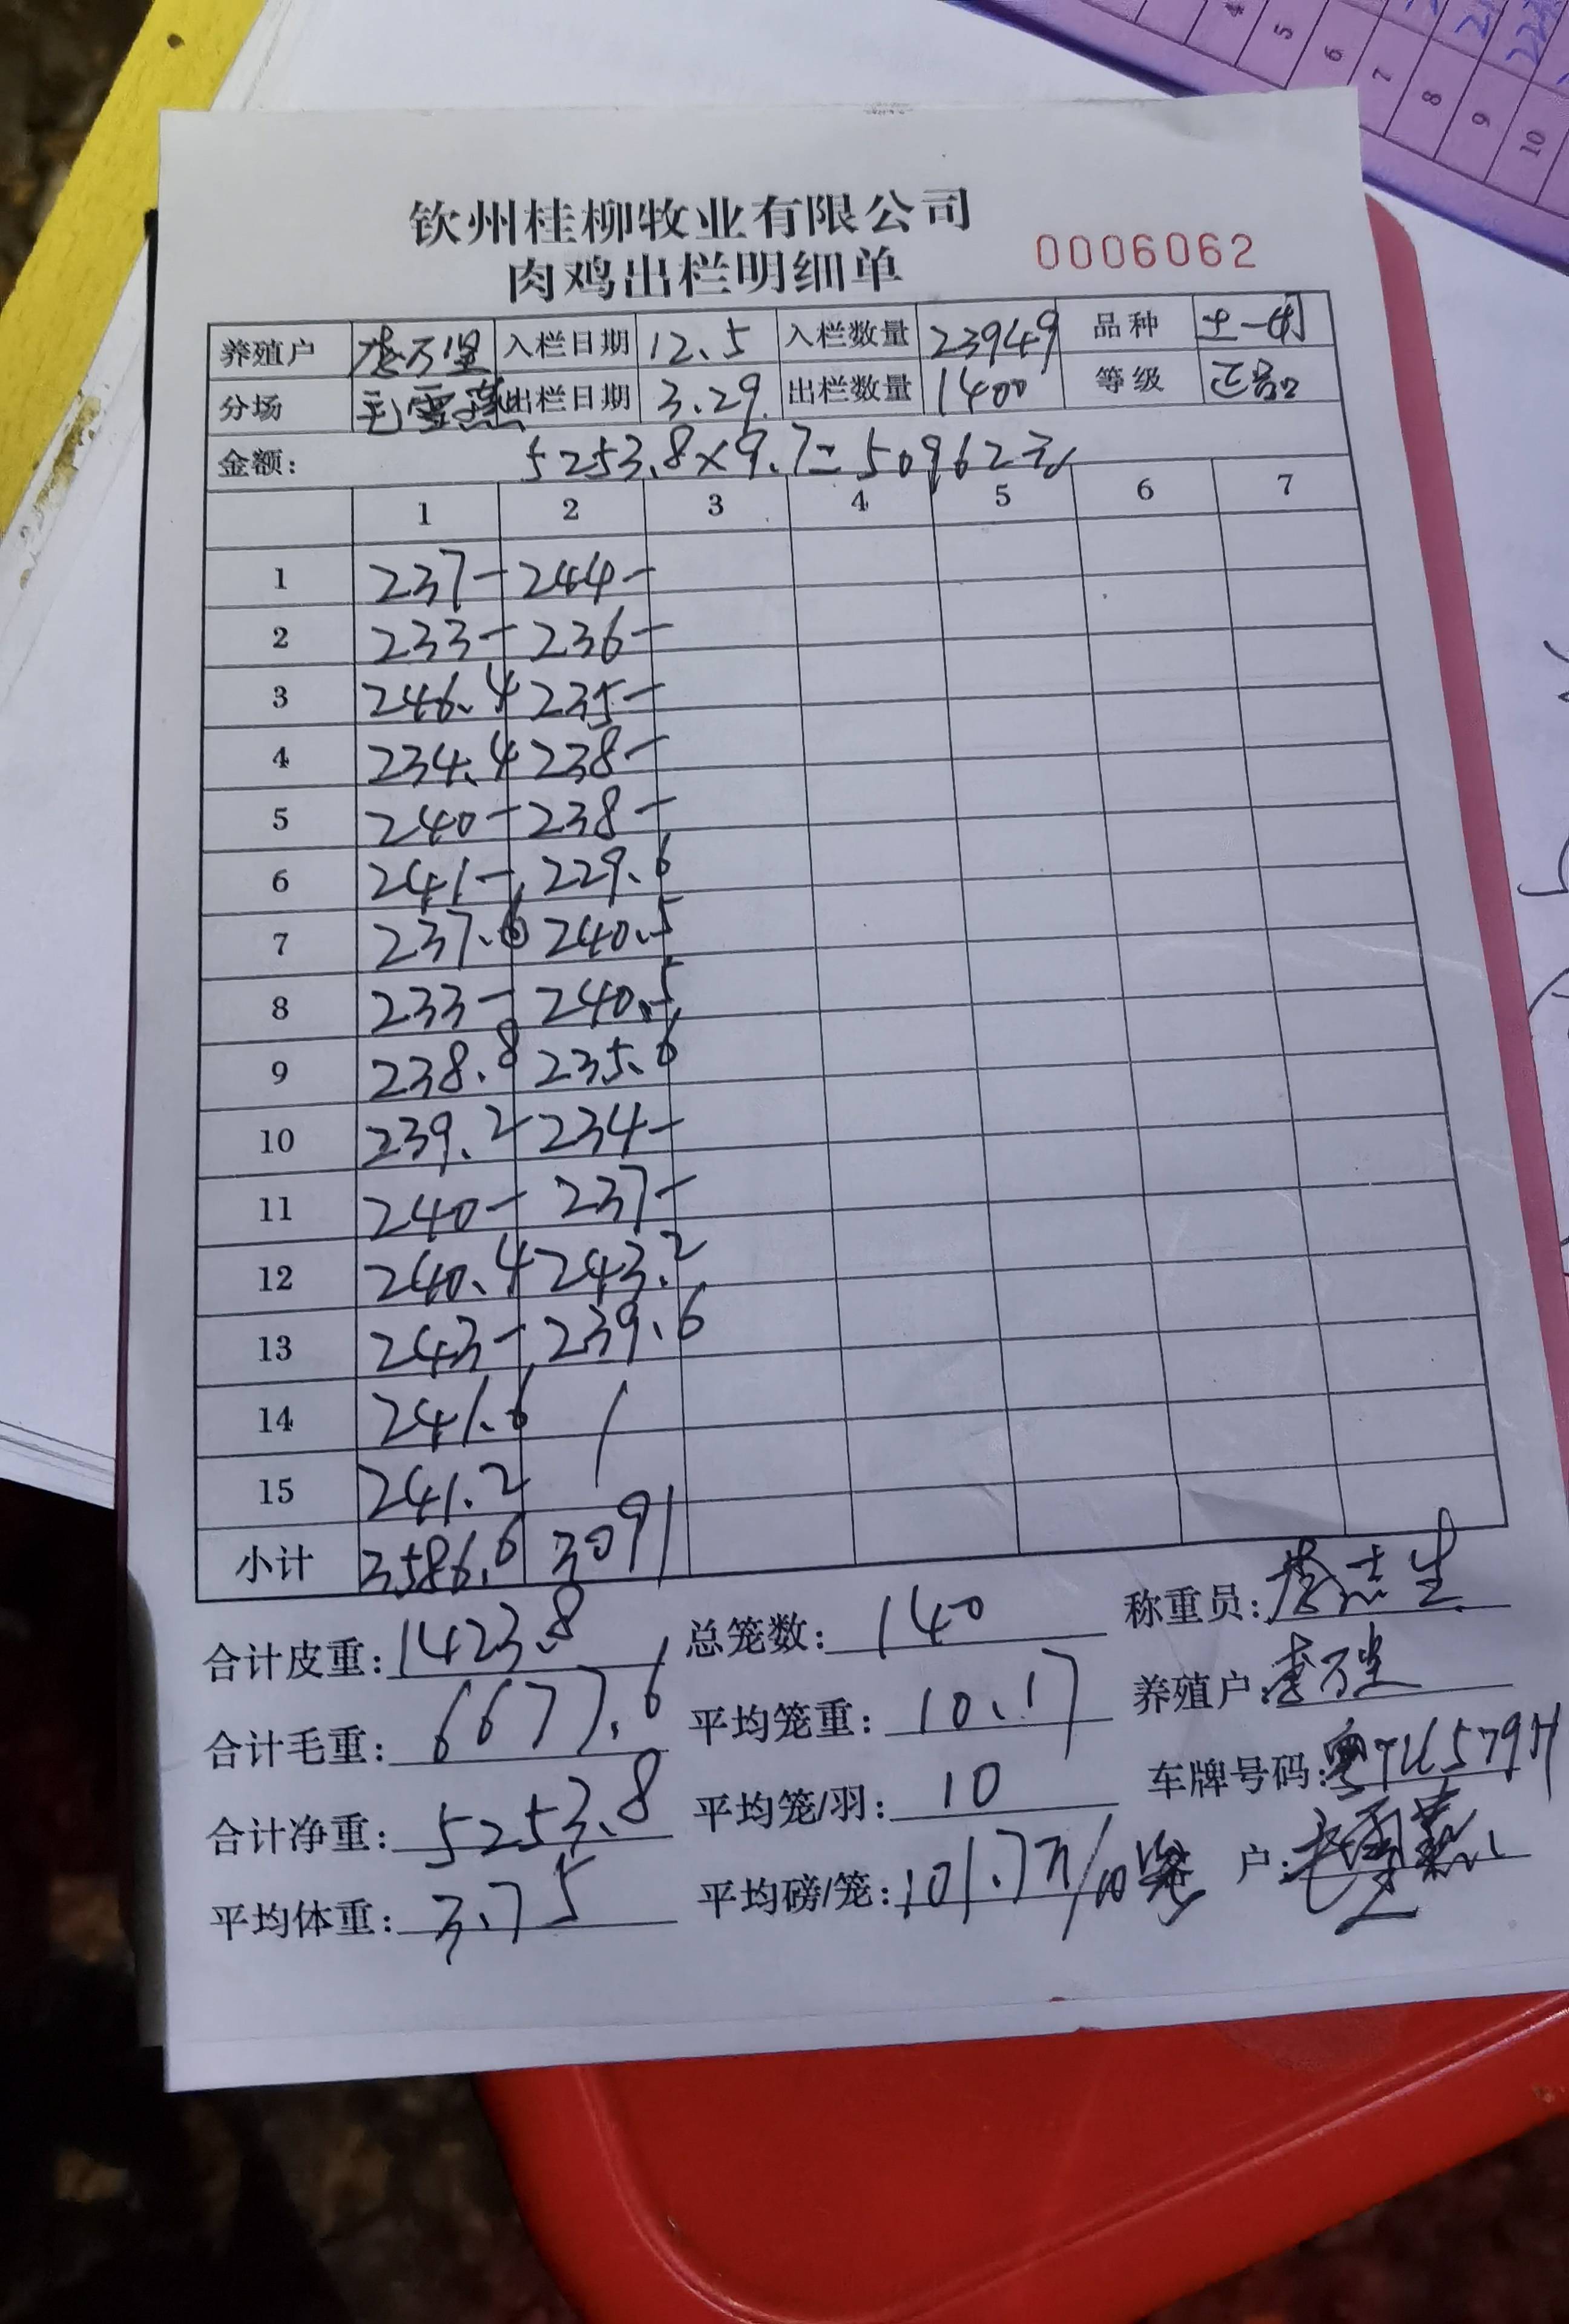 钦州桂柳牧业有限公司
肉鸡出栏明细单 0006062
养殖户 李万坚 入栏日期 12.5 入栏数量 23949 品种 土一
分场 毛雪燕 出栏日期 3.29 出栏数量 1400 等级 正品
金额: 5253.8×9.7=50962元
1 2 3 4 5 6 7
1 237- 244-
2 233- 236-
3 246.4 235-
4 234.4 238-
5 240- 238-
6 241- 229.6
7 237.6 240.5
8 233- 240.5
9 238.8 235.6
10 239.2 234-
11 240- 237-
12 240.4 243.2
13 243- 239.6
14 241.6 /
15 241.2
小计 3586.6 3091
合计皮重: 1423.8 总笼数: 140 称重员:
合计毛重: 6677.6 平均笼重: 10.17 养殖户: 李万坚
合计净重: 5253.8 平均笼/羽: 10 车牌号码: 粤
平均体重: 3.75 平均磅/笼: 101.7 户:
4 5 6 7 8 9 10